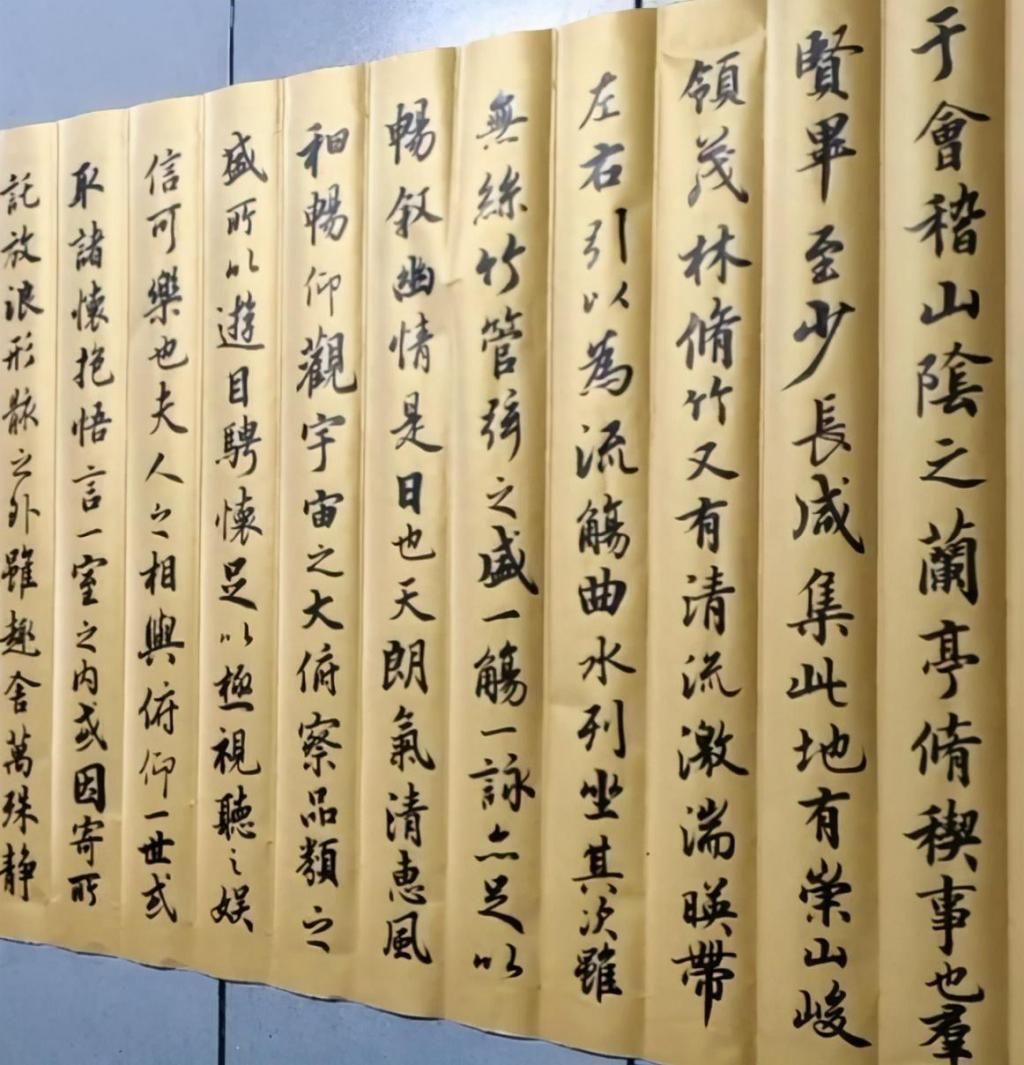 于會稽山陰之蘭亭脩稧事也羣
賢畢至少長咸集此地有崇山峻
領茂林脩竹又有清流激湍暎帶
左右引以為流觴曲水列坐其次雖
無絲竹管弦之盛一觴一詠亦足以
暢敘幽情是日也天朗氣清惠風
和暢仰觀宇宙之大俯察品類之
盛所以遊目騁懷足以極視聽之娛
信可樂也夫人之相與俯仰一世或
取諸懷抱悟言一室之內或因寄所
託放浪形骸之外雖趣舍萬殊靜